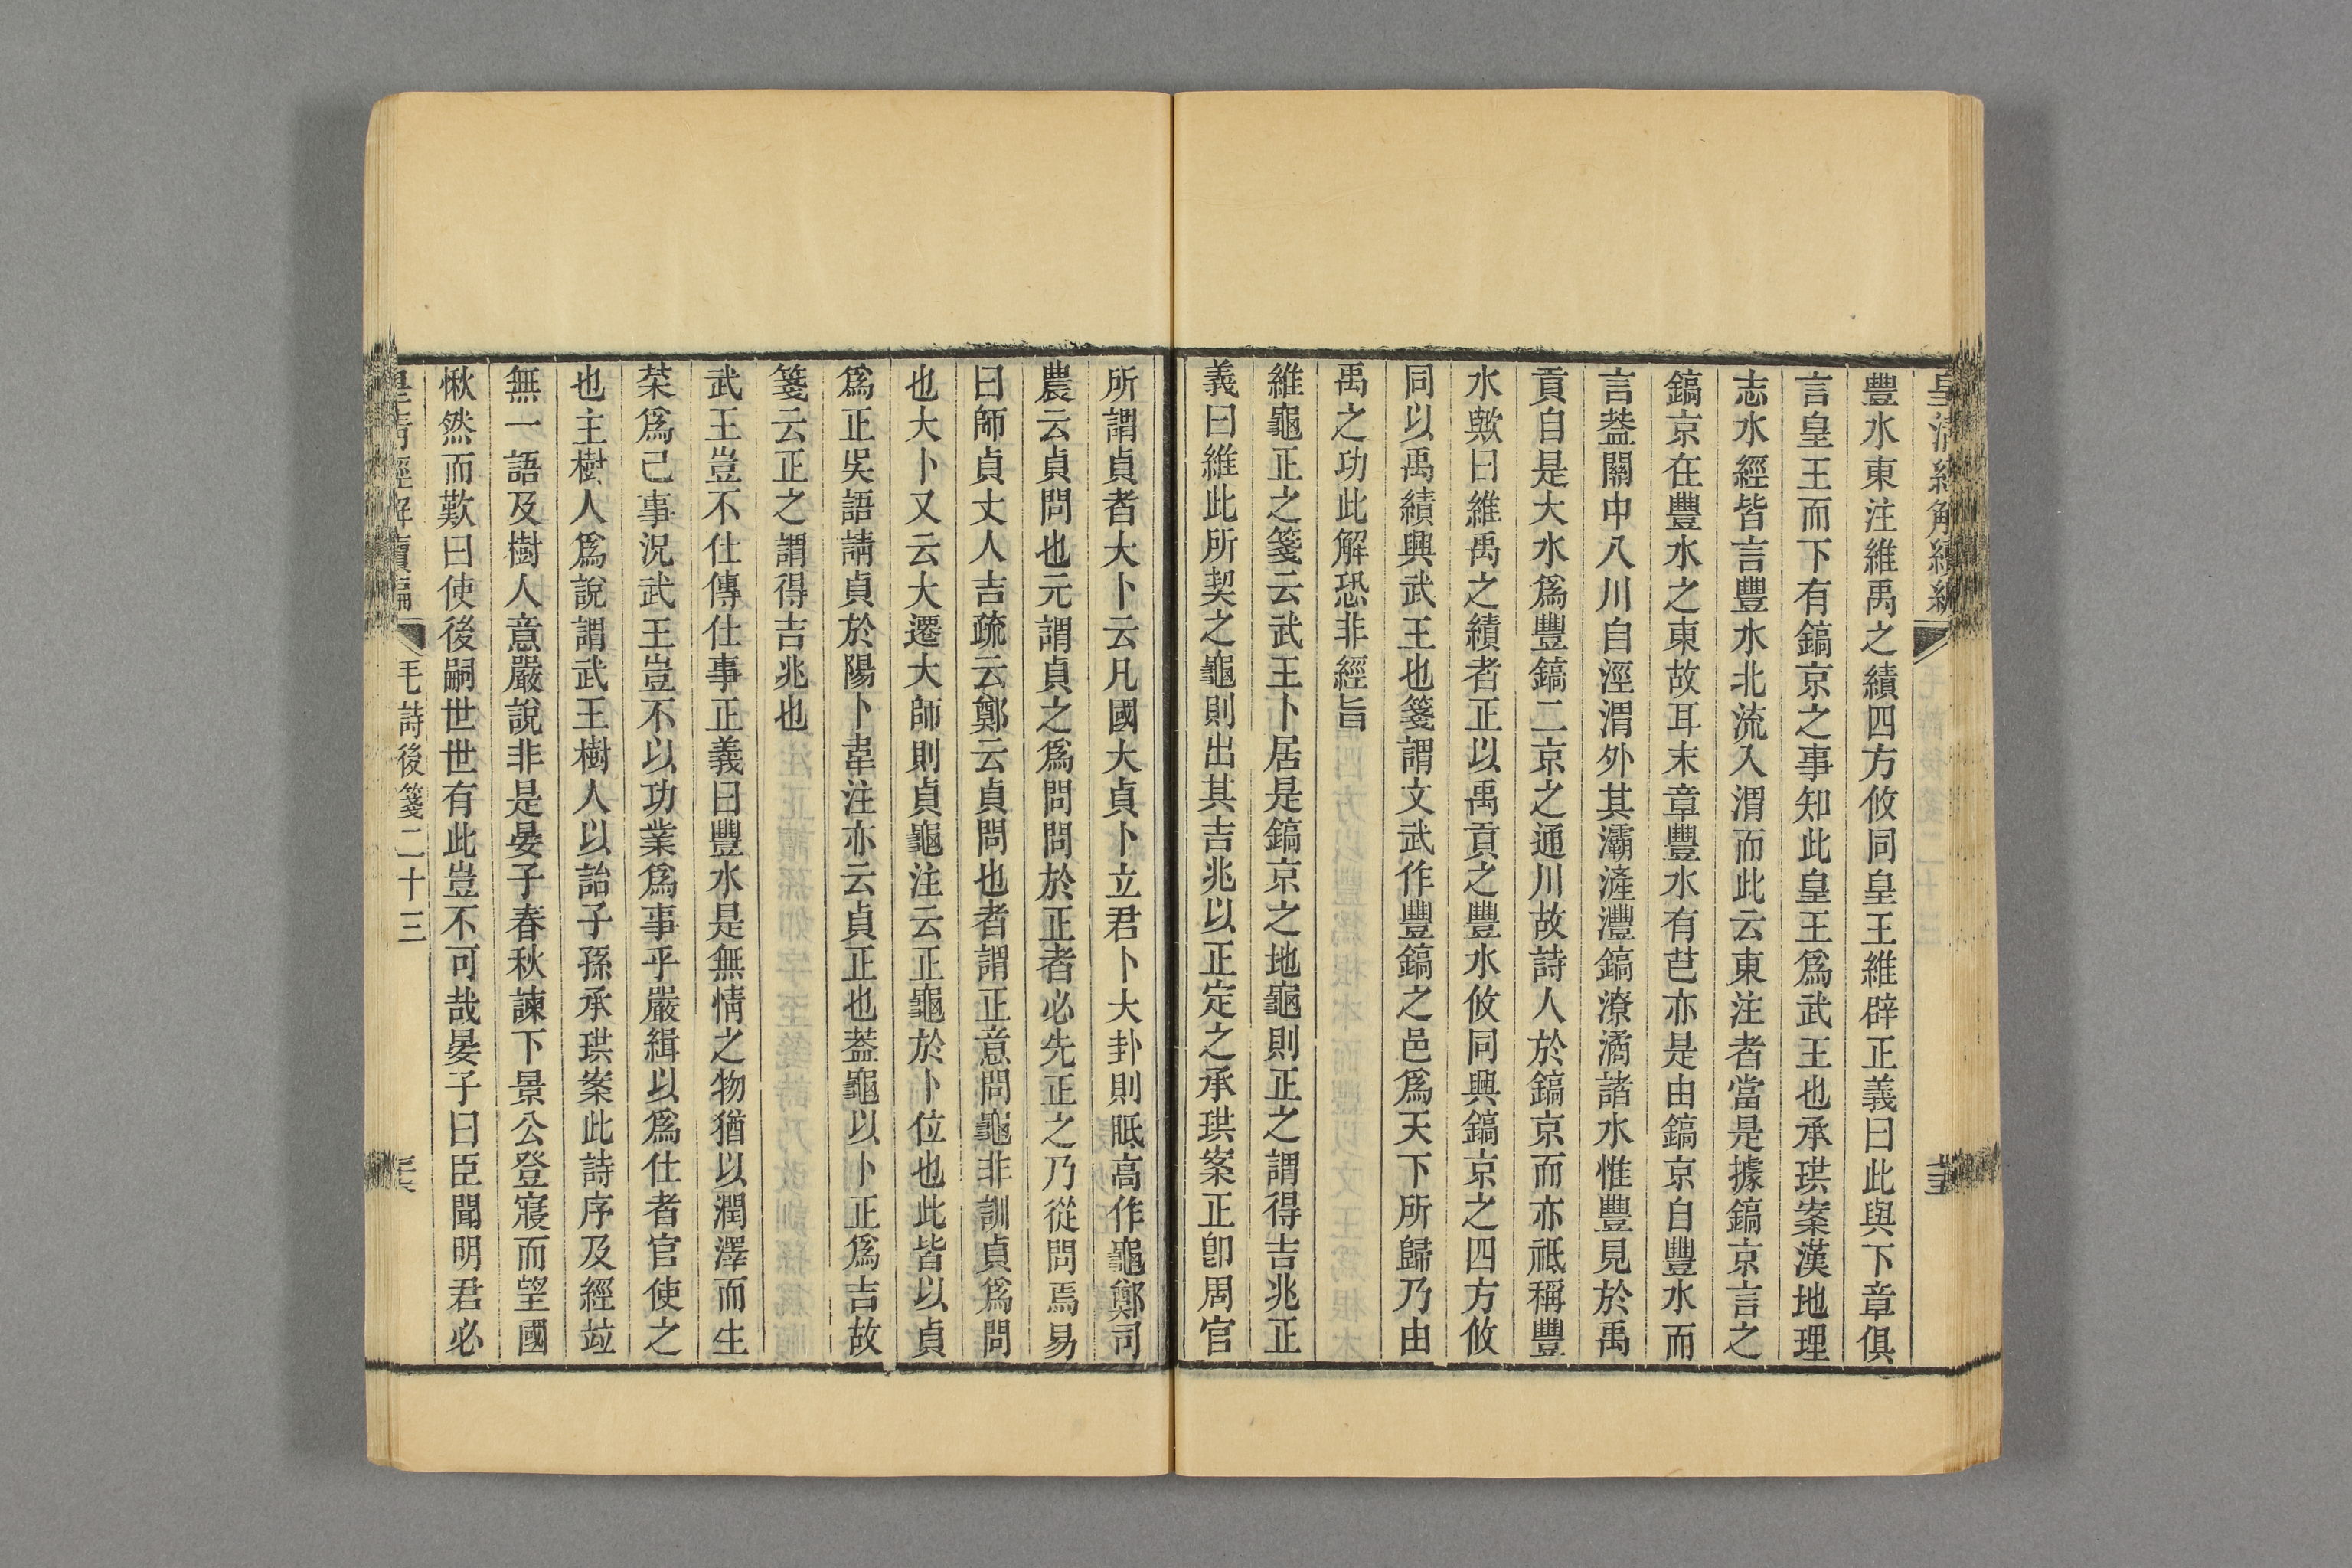 豐水東注維禹之績四方攸同皇王維辟正義曰此與下章俱
言皇王而下有鎬京之事知此皇王爲武王也承珙案漢地理
志水經皆言豐水北流入渭而此云東注者當是據鎬京言之
鎬京在豐水之東故耳末章豐水有芑亦是由鎬京自豐水而
言葢關中八川自涇渭外其灞滻灃鎬潦潏諸水惟豐見於禹
貢自是大水爲豐鎬二京之通川故詩人於鎬京而亦祗稱豐
水歟曰維禹之績者正以禹貢之豐水攸同興鎬京之四方攸
同以禹績興武王也箋謂文武作豐鎬之邑爲天下所歸乃由
禹之功此解恐非經旨
維龜正之箋云武王卜居是鎬京之地龜則正之謂得吉兆正
義曰維此所契之龜則出其吉兆以正定之承珙案正卽周官
所謂貞者大卜云凡國大貞卜立君卜大卦則眡高作龜鄭司
農云貞問也元謂貞之爲問問於正者必先正之乃從問焉易
曰師貞丈人吉疏云鄭云貞問也者謂正意問龜非訓貞爲問
也大卜又云大遷大師則貞龜注云正龜於卜位也此皆以貞
爲正吳語請貞於陽卜韋注亦云貞正也葢龜以卜正爲吉故
箋云正之謂得吉兆也
武王豈不仕傳仕事正義曰豐水是無情之物猶以潤澤而生
菜爲己事況武王豈不以功業爲事乎嚴緝以爲仕者官使之
也主樹人爲說謂武王樹人以詒子孫承珙案此詩序及經竝
無一語及樹人意嚴說非是晏子春秋諫下景公登寢而望國
愀然而歎曰使後嗣世世有此豈不可哉晏子曰臣聞明君必
皇清經解續編
毛詩後箋二十三